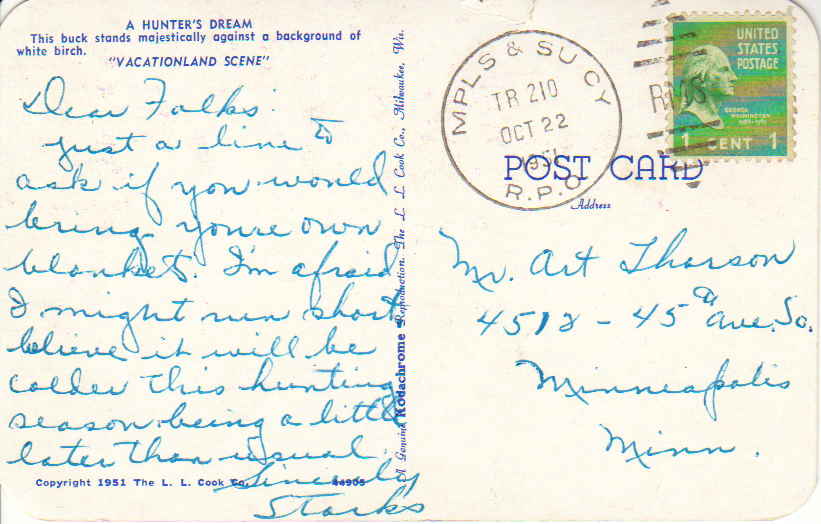 A HUNTER'S DREAM
This buck stands majestically against a background of
white birch.
"VACATIONLAND SCENE"
Dear Folks:
just a line to
ask if you would
bring youre own
blankets. I'm afraid
I might run short,
believe it will be
colder this hunting
season being a little
later than usual.
Sincerely
Starks
Copyright 1951 The L. L. Cook Co.
44905
A Genuine Kodachrome Reproduction. The L. L. Cook Co., Milwaukee, Wis.
MPLS & SU CY
TR 210
OCT 22
R.P.O.
RMS
UNITED
STATES
POSTAGE
GEORGE
WASHINGTON
1 CENT 1
POST CARD
Address
Mr. Art Tharson
4512 - 45th Ave. So.
Minneapolis
Minn.